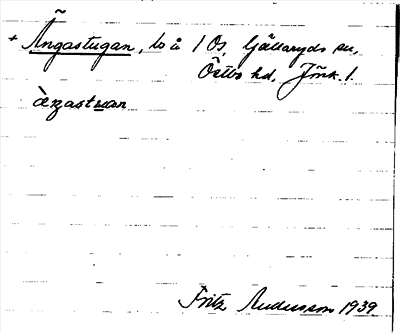 + Ängastugan, to å 1 Ös, Gällaryds sn,
Östbo hd, Jönk. l.
àŋastuan
Fritz Andersson 1939